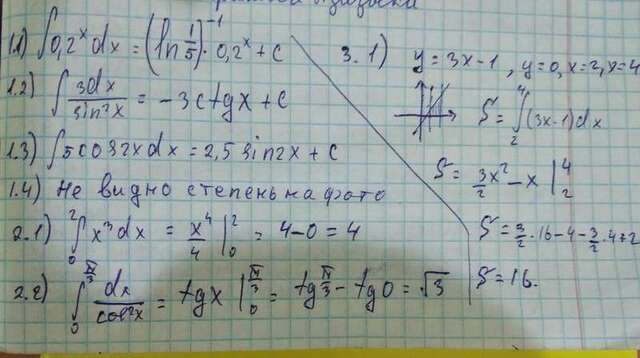 1.1) ∫0,2ˣdx = (ln 1/5)⁻¹ · 0,2ˣ + c
1.2) ∫ 3dx/sin²x = -3ctgx + c
1.3) ∫5cos2xdx = 2,5sin2x + c
1.4) Не видно степень на фото
2.1) ∫₀² x³dx = x⁴/4 |₀² = 4-0 = 4
2.2) ∫₀^(π/3) dx/cos²x = tgx |₀^(π/3) = tg π/3 - tg0 = √3
3. 1) y = 3x-1, y=0, x=2, x=4
S = ∫₂⁴ (3x-1)dx
S = 3/2 x² - x |₂⁴
S = 3/2 · 16 - 4 - 3/2 · 4 + 2
S = 16.